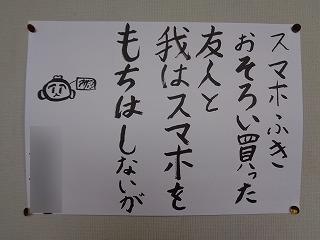 スマホふき
おそろい買った
友人と
我はスマホを
もちはしないが